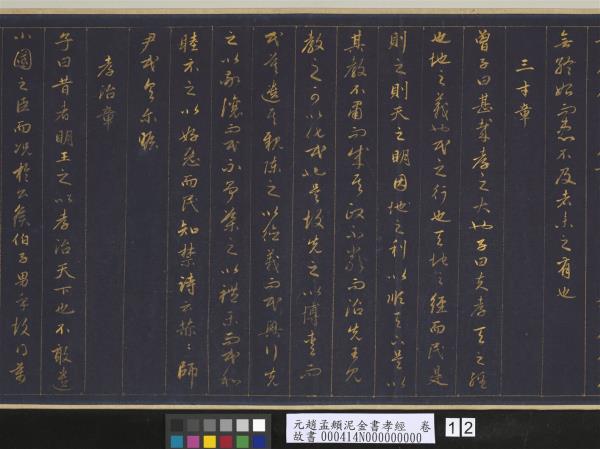 無終始而患不及者未之有也
三才章
曾子曰甚哉孝之大也子曰夫孝天之經
也地之義也民之行也天地之經而民是
則之則天之明因地之利以順天下是以
其教不肅而成其政不嚴而治先王見
教之可以化民也是故先之以博愛而
民莫遺其親陳之以德義而民興行先
之以敬讓而民不爭導之以禮樂而民和
睦示之以好惡而民知禁詩云赫〻師
尹民具爾瞻
孝治章
子曰昔者明王之以孝治天下也不敢遺
小國之臣而況於公侯伯子男乎故得萬
元趙孟頫泥金書孝經 卷
故書 000414N000000000
12